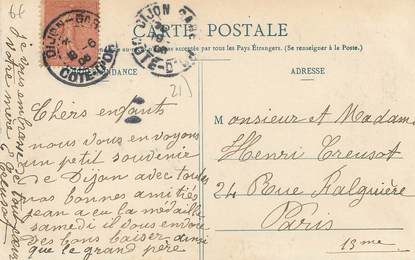 CARTE POSTALE
tous les Pays Étrangers. (Se renseigner à la Poste.)
ADRESSE
DIJON-GARE
COTE-D'OR
DIJON GARE
COTE-D'OR
Chers enfants
nous vous envoyons
un petit souvenir
de Dijon avec toutes
nos bonnes amitiés
jean a eu la médaille
samedi il vous envoie
des bons baiser ainsi
que le grand père
je vous embrasse
votre mère
21
Monsieur et Madame
Henri Creusot
24 Rue Falguière
Paris
15me